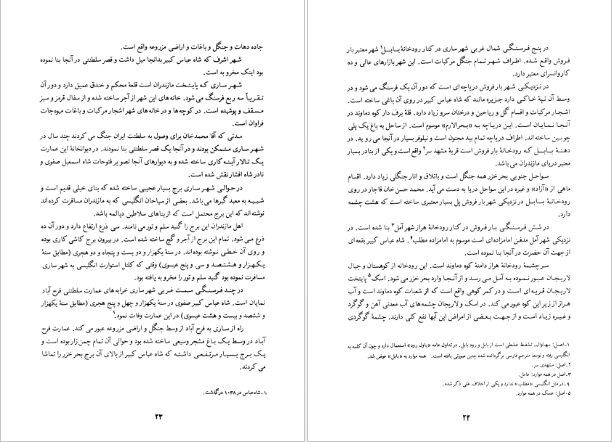 جاده دهات و جنگل و باغات و اراضی مزروعه واقع است.
شهر اشرف که شاه عباس کبیر بدانجا میل داشت و قصر سلطنتی در آنجا بنا نموده
بود اینک مخروبه است.
شهر ساری که پایتخت مازندران است قلعهٔ محکم و خندق عمیق دارد و دور آن
تقریباً سه ربع فرسنگ می‌شود. خانه‌های این شهر از آجر ساخته شده و از سفال قرمز و سبز
مسقف و پوشیده است. در کوچه‌ها و در خانه‌های شهر اشجار مرکبات و باغات میوجات
فراوان است.
مدتی که آقا محمدخان برای وصول به سلطنت ایران جنگ می‌کردند چند سال در
شهر ساری متمکن بودند و در آنجا یک قصر سلطنتی بنا نمودند. در دیوانخانهٔ این عمارت
یک تالار آینه کاری ساخته شده و به دیوارهای آنجا تصویر فتوحات شاه اسمعیل صفوی و
نادر شاه افشار نقش شده است.
در حوالی شهر ساری برج بسیار عجیبی ساخته شده که بنای خیلی قدیم است و
شبیه به معبد گبرها می‌باشد. بعضی از سیاحان انگلیس که به مازندران مسافرت کرده‌اند
نوشته‌اند که این برج محتمل است که از بناهای سلاطین دیالمه باشد.
اهل مازندران این برج را گنبد سلم و تور می‌نامند. سی ذرع ارتفاع دارد و دور آن ده
ذرع می‌شود. تمام این برج از آجر و گچ ساخته شده است. در بیرون برج کاشی کاری بوده
و روی آن خطی نوشته بوده‌اند. در سنهٔ یکهزار و دویست و پنجاه و دو هجری (مطابق سنهٔ
یکهزار و هشتصد و سی و پنج عیسوی) وقتی که کلنل استوارت انگلیسی به شهر ساری
مسافرت نموده بود گنبد سلم و تور را مخروبه یافته بود.
در چند فرسنگی سمت غربی شهر ساری خرابه های عمارت سلطنتی فرح آباد
نمایان است. شاه عباس کبیر صفوی در سنهٔ یکهزار و چهل و پنج هجری (مطابق سنهٔ یکهزار
و ششصد و بیست و هشت عیسوی) در این عمارت وفات نمود.۱
راه از ساری به فرح آباد از وسط جنگل و اراضی مزروعه عبور می‌کند. عمارت فرح
آباد در وسط یک باغ مشجر وسیعی ساخته شده بود و حوالی آن تمام چمن‌زار بوده است و
یک برج بسیار مرتفعی داشته که شاه عباس کبیر از بالای آن برج بحر خزر را تماشا
می کردند.
۱ - شاه عباس در ۱۰۳۸ درگذشت.
۲۳
در پنج فرسنگی شمال غربی شهر ساری در کنار رودخانهٔ بابل۱ شهر معتبر بار
فروش واقع شده. اطراف شهر تمام جنگل مرکبات است. این شهر بازارهای عالی و ده
کاروانسرای معتبر دارد.
در نزدیکی شهر بارفروش دریاچه‌ای است که دور آن یک فرسنگ می شود و در
وسط آن تپهٔ خاکی دارد جزیره مانند که شاه عباس کبیر در روی آن باغی ساخته است.
اشجار مرکبات و اقسام گل و ریاحین و درختان سرو زیاد دارد. قلهٔ برف دار کوه دماوند در
آنجا نمایان است. این دریاچه به «بحرالارم» موسوم است. از ساحل به باغ یک پلی
چوبین ساخته‌اند. اطراف دریاچه تمام بید مجنون است و نیلوفر بسیار در آنجا می روید. در
دهنهٔ بابل که رودخانهٔ بارفروش است قریهٔ مشهد سر۲ واقع است و یکی از بنادر بسیار
معتبر دریای مازندران می‌باشد.
سواحل جنوبی بحر خزر همه جنگل است و باتلاق و انار جنگلی زیاد دارد. اقسام
ماهی از «آزاد» و غیره در این سواحل به دست می آید. محمد حسن خان قاجار در روی
رودخانهٔ بابل در نزدیکی شهر بارفروش پل بسیار معتبری ساخته است که هشت چشمه
دارد.
در شش فرسنگی بارفروش در کنار رودخانهٔ هراز شهر آمل۳ بنا شده است. در
نزدیکی شهر آمل مدفن امامزاده‌ای است موسوم به امامزاده مطلب۴. شاه عباس کبیر بقعه‌ای
از جهت آن حضرت در آنجا بنا نموده است.
سرچشمهٔ رودخانهٔ هراز دامنهٔ کوه دماوند است. این رودخانه از کوهستان و جبال
لاریجان عبور نموده به آمل می رسد و از آنجا وارد بحر خزر می شود. اسک۵ پایتخت
لاریجان قریه‌ای است و در کمر کوهی واقع است که از شعبات کوه دماوند است و آب
هراز از زیر این کوه عبور می کند. در اسک و لاریجان چشمه های آب معدنی آهن و گوگرد
و غیره زیاد است و از جهت بعضی از امراض این آبها نفع کلی دارند. چشمهٔ گوگردی
۲- اصل: مشهدی سر.
۳- اصل در همه موارد: عامل.
۴- در متن انگلیسی «مطلب» ندارد و یکی از اخلاف علی ذکر شده.
۵- اصل در همه موارد: عسک.
۲۴